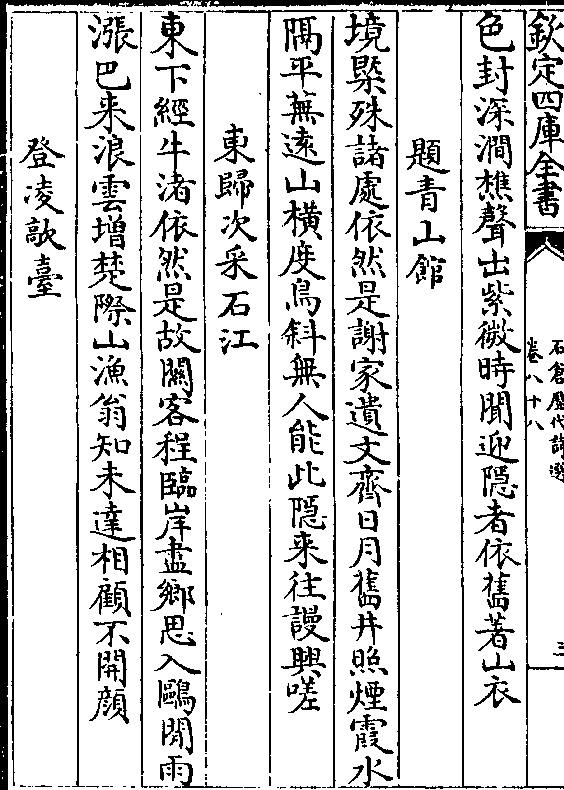 欽定四庫全書
石倉歷代詩選
卷八十八
三
色封深澗樵聲出紫微時聞迎隠者依舊著山衣
題青山館
境槩殊諸處依然是謝家遺文齊日月舊井照煙霞水
隔平蕪逺山横度鳥斜無人能此隠来往謾興嗟
東歸次采石江
東下經牛渚依然是故闗客程臨岸盡鄉思入鷗閒雨
漲巴来浪雲增楚際山漁翁知未達相顧不開顔
登凌歊臺